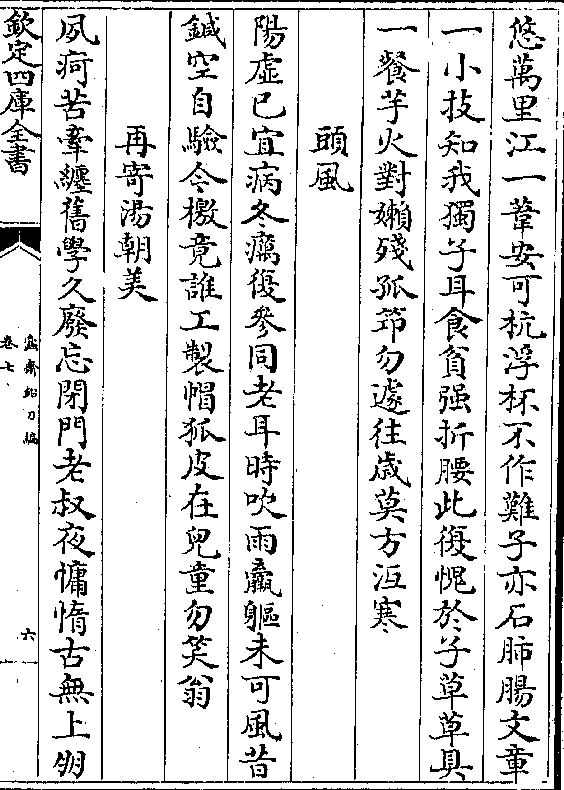 悠萬里江一葦安可杭浮杯不作難子亦石肺腸文章
一小技知我獨子耳食貧强折腰此復愧於子草草具
一餐芋火對嬾殘孤笻勿遽往歳莫方沍寒
頭風
陽虛已宜病冬癘復參同老耳時吹雨羸軀未可風昔
鍼空自驗今檄竟誰工製帽狐皮在兒童勿笑翁
再寄湯朝美
夙痾苦牽纏舊學久廢忘閉門老叔夜慵惰古無上朔
欽定四庫全書
卷七
六